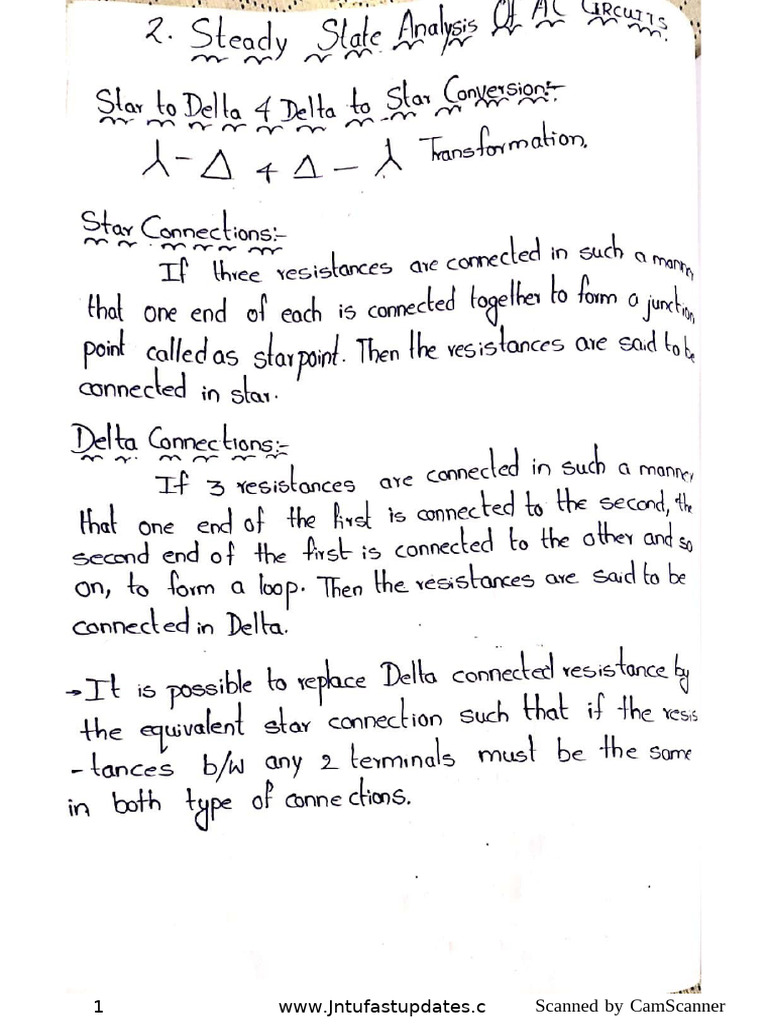 2. Steady State Analysis Of AC CIRCUITS
Star to Delta & Delta to Star Conversion:-
⅄ - Δ & Δ - ⅄ Transformation.
Star Connections:-
If three resistances are connected in such a manner
that one end of each is connected together to form a junction
point called as star point. Then the resistances are said to be
connected in star.
Delta Connections:-
If 3 resistances are connected in such a manner
that one end of the first is connected to the second, the
second end of the first is connected to the other and so
on, to form a loop. Then the resistances are said to be
connected in Delta.
→ It is possible to replace Delta connected resistance by
the equivalent star connection such that if the resis
-tances b/w any 2 terminals must be the same
in both type of connections.
1 www.Jntufastupdates.c Scanned by CamScanner